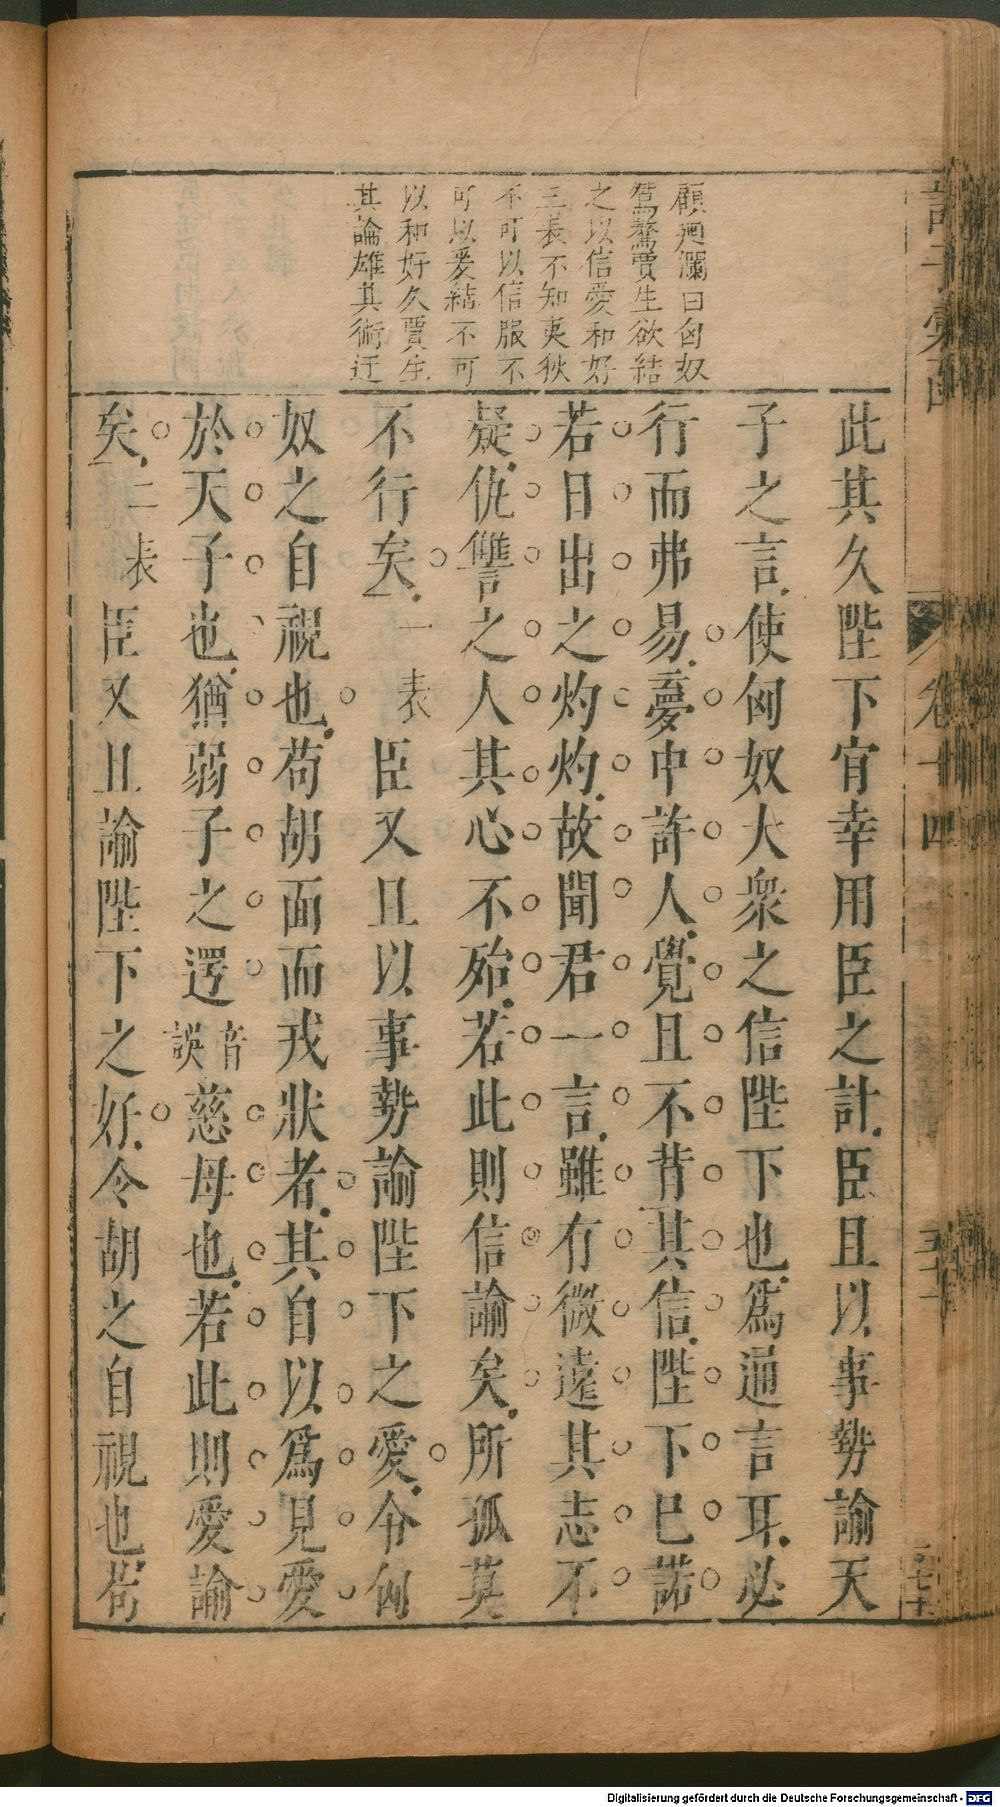 顧廻瀾曰匈奴
鴛驁賈生欲結
之以信愛和好
三表不知夷狄
不可以信服不
可以愛結不可
以和好久賈生
其論雄其術迂
此其久陛下宵幸用臣之計臣且以事勢諭天
子之言使匈奴大衆之信陛下也爲通言耳必
行而弗易夢中許人覺且不背其信陛下巳諾
若日出之灼灼故聞君一言雖有微遠其志不
疑仇讐之人其心不殆若此則信諭矣所孤莫
不行矣一表臣又且以事勢諭陛下之愛令匈
奴之自視也苟胡面而戎狀者其自以爲見愛
於天子也猶弱子之遻音誤慈母也若此則愛諭
矣二表臣又且諭陛下之好令胡之自視也苟
卷十四
Digitalisierung gefördert durch die Deutsche Forschungsgemeinschaft - DFG